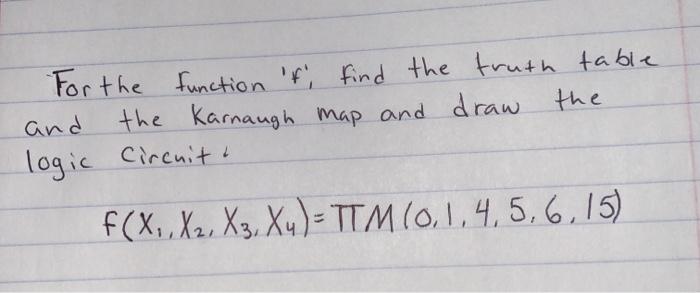 For the function 'f', find the truth table
and the Karnaugh map and draw the
logic Circuit:
f(X₁, X₂, X₃, X₄) = ΠM(0,1,4,5,6,15)